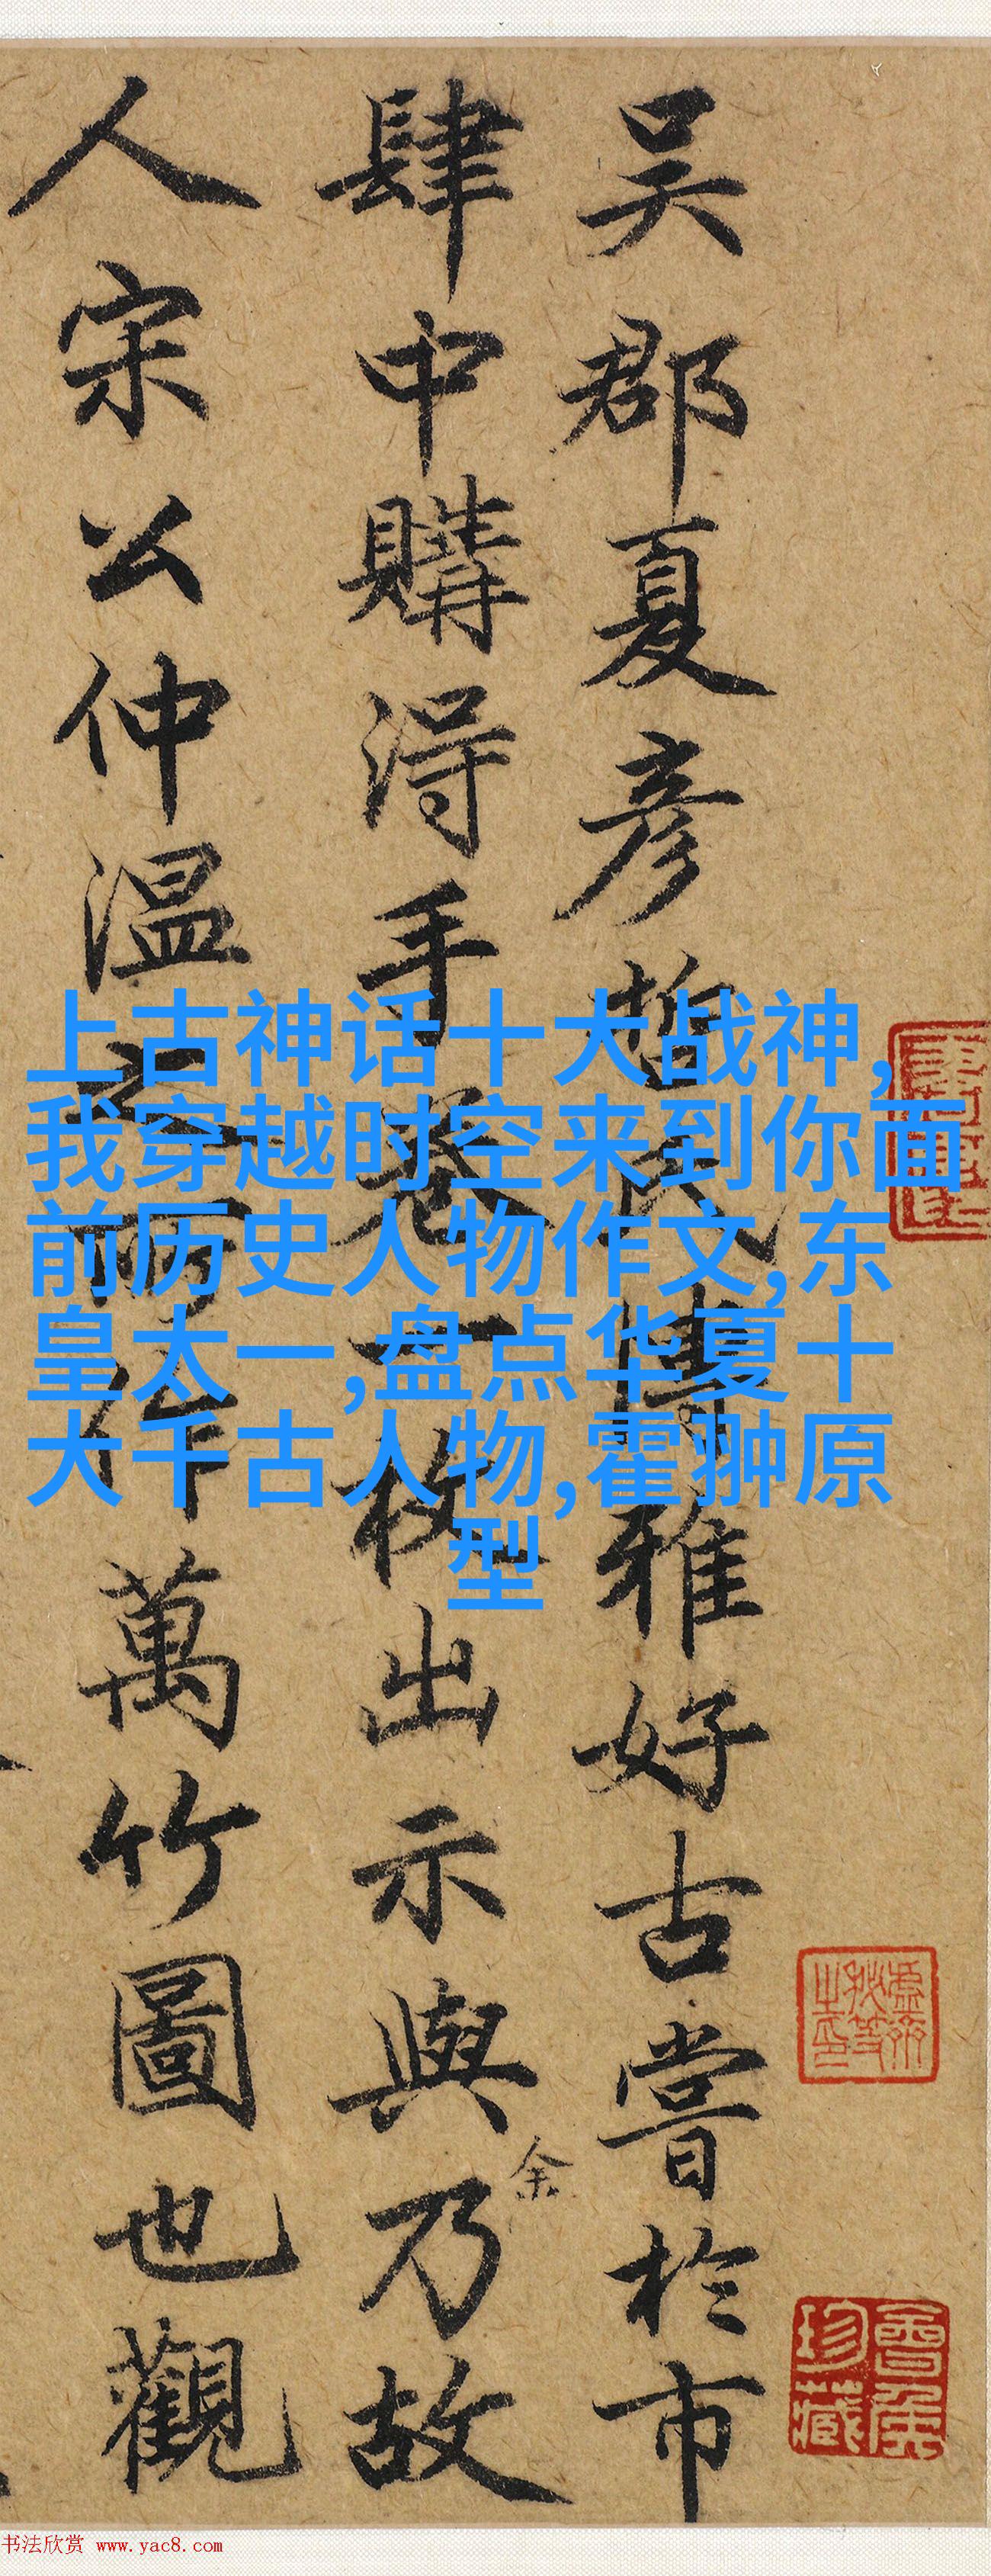 吴郡夏彦哲氏博雅好古嘗於市
肆中購得手卷一枚出示與余乃故
人宋公仲温之所作萬竹圖也觀
上古神话十大战神,
我穿越时空来到你面
前历史人物作文,东
皇太一,盘点华夏十
大千古人物,霍翀原
型
珍藏
书法欣赏 www.yac8.com